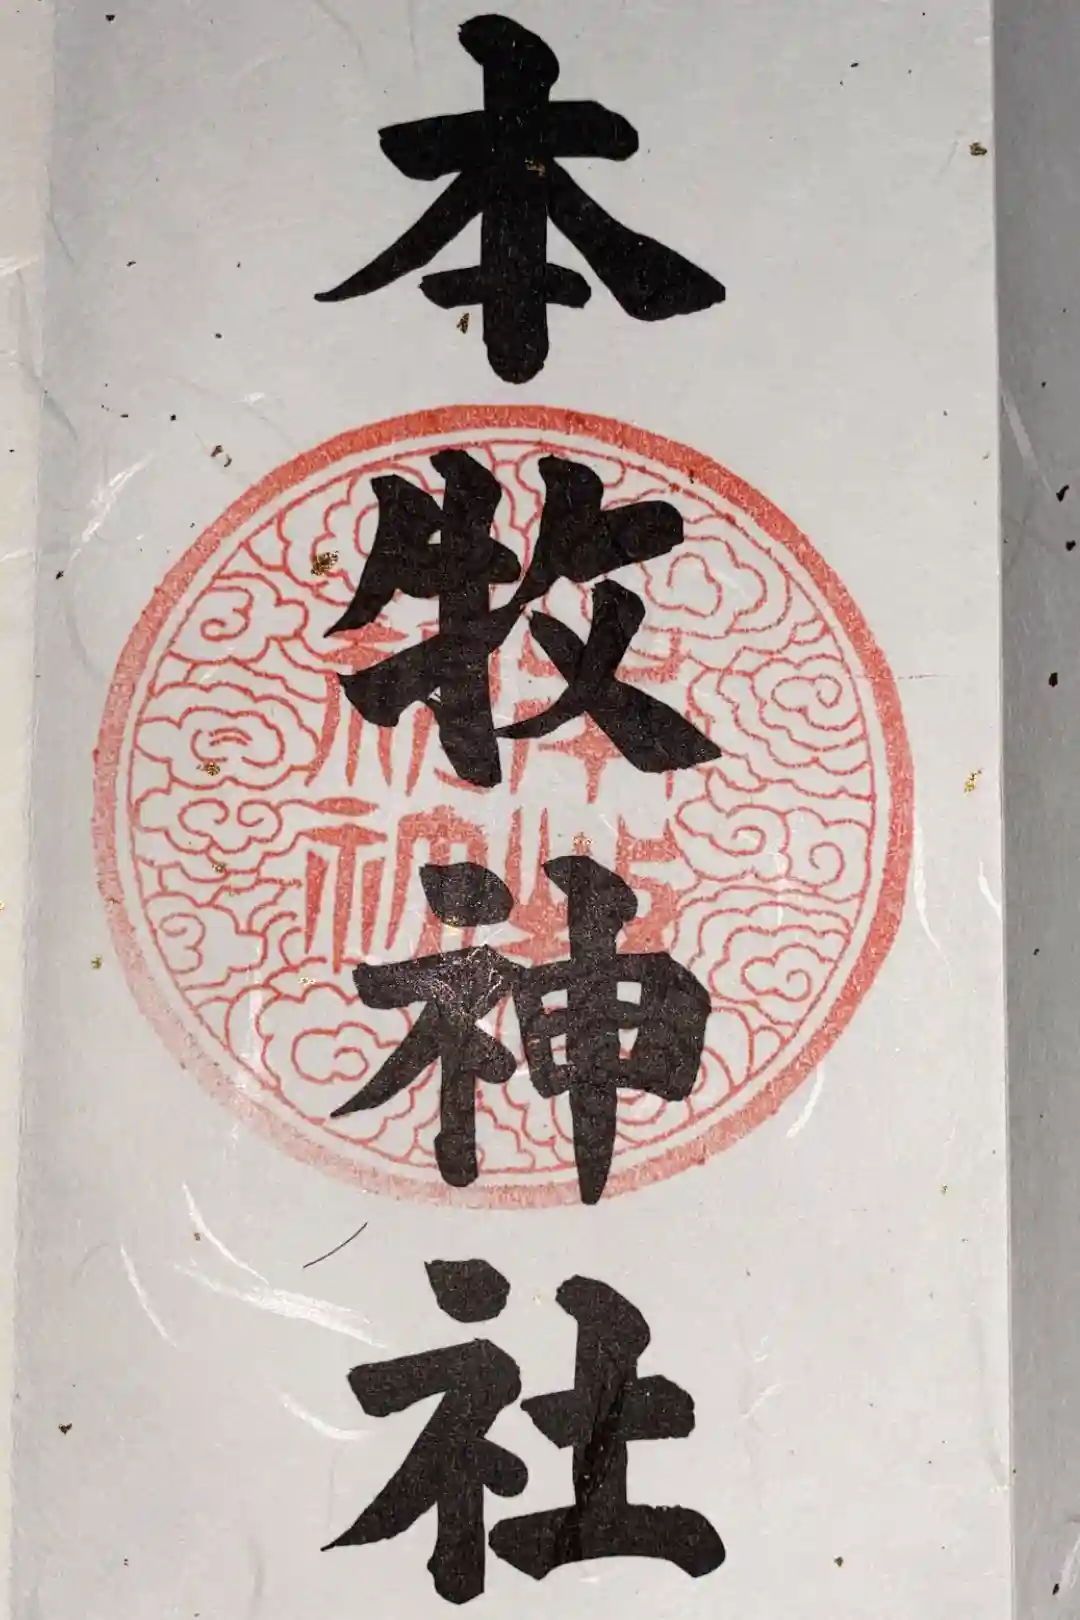 本牧神社